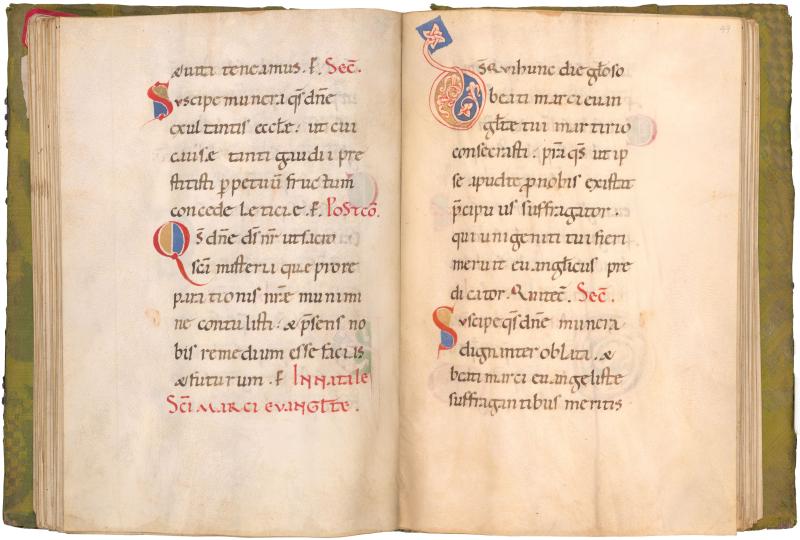 & uita teneamus. ꝑ. Sec̄.
Suscipe munera q̄s dn̄e
exultantis eccle: ut cui
causæ tanti gaudii pre
stitisti ꝑpetuū fructum
concede leticie. ꝑ. Postcō.
Qs̄ dn̄e ds̄ nr̄ ut sacro
sc̄i misteria que pro re
parationis nr̄e munimi
ne contulisti: & p̄sens no
bis remedium esse facias
& futurum. ꝑ INNATALE
SC̄I MARCI EVANGL̄TE.
49
Ds̄ qui hunc die gl̄oso
beati marci euan
gl̄te tui martirio
consecrasti: p̄ra q̄s ut ip
se apud te ꝓ nobis existat
p̄cipuus suffragator.
qui unigeniti tui fieri
meruit euanglicus pre
dicator. Qui tec̄. Sec̄.
Suscipe q̄s dn̄e munera
dignanter oblata. &
beati marci euangeliste
suffragantibus meritis